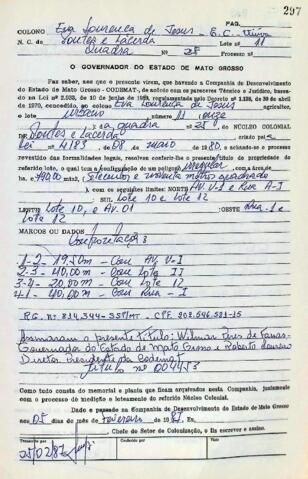 PÁG.
297
COLONO Eva Lourença de Jesus - E.C. Viúva
N. C. de Pontes e Lacerda Lote nº 11
Quadra Nº 28 Processo
O GOVERNADOR DO ESTADO DE MATO GROSSO
Faz saber, aos que o presente virem, que havendo a Companhia de Desenvolvimento
do Estado de Mato Grosso - CODEMAT-, de acôrdo com os pareceres Técnico e Jurídico,
baseado na Lei nº 2.083, de de 1969, regulamentada pelo Decreto nº 1.138, de 29 de abril
de 1970, concedido, ao colono Eva Lourença de Jesus agricultor,
o lote urbano número 11 onze
da quadra nº 28 NÚCLEO COLONIAL
de Pontes e Lacerda criado pela
Lei 4185 08 maio 1980, e achando-se o processo
revestido das formalidades legais, resolveu conferir-lhe o presente título de propriedade do
referido lote, o qual tem a configuração de um polígono irregular e a área
de ha. 790,00 mts2, Setecentos e noventa metros quadrados
, com os seguintes limites: NORTE: AV. V-I e Rua A-I
SUL Lote 10 e Lote 12
LESTE Lote 10, e Av. 01 OESTE Rua-1 e
Lote 12
MARCOS OU DADOS
1-2 19,50m - Com AV V-I
2-3 - 40,00m - Com Lote
3-4 - 20,00m - Com Lote 12
4-1 - 40,00m - Com Rua - I
R.G. Nº 814,344-SSP/MT - CPF.
Assinaram o presente título: Wilmar Peres de Farias-
Governador do Estado de Mato Grosso e Roberto
Diretor Presidente da Codemat
Título nº 004453
Como tudo consta do memorial e planta que ficam arquivados nesta Companhia, juntamente
com o processo de medição e loteamento do referido Núcleo Colonial.
Dado e passado na Companhia de Desenvolvimento do Estado de Mato Grosso
aos 05 dias do mês de fevereiro de 1987. Eu,
Chefe do Setor de Colonização, o fiz escrever e assino.
25/02/87